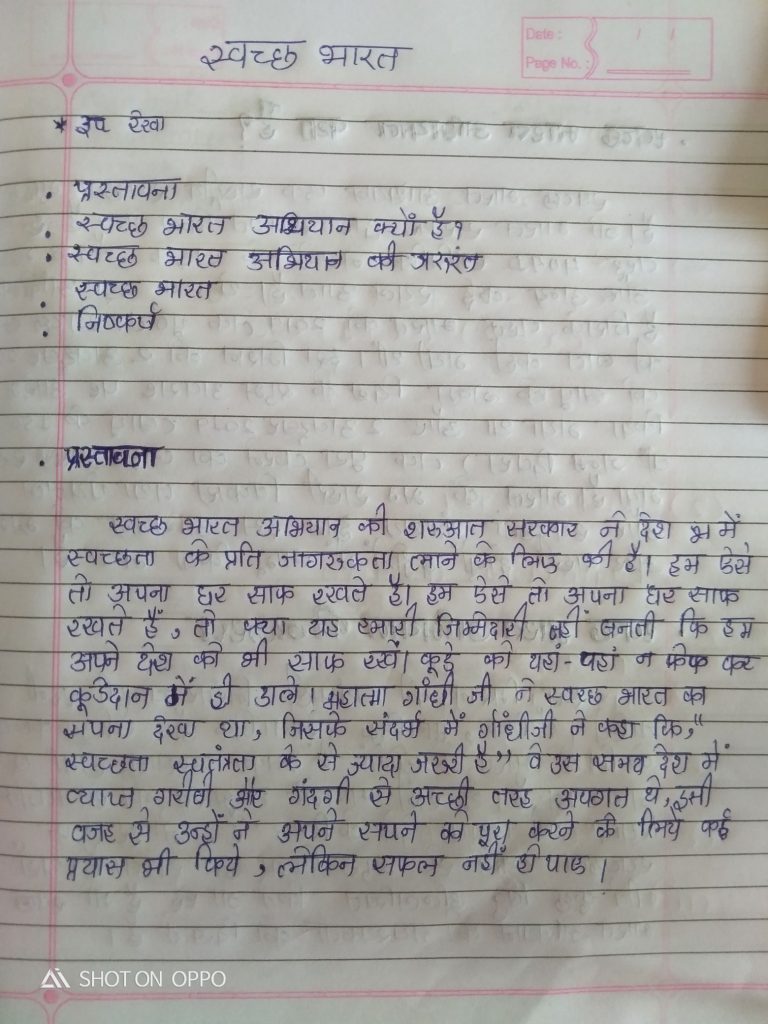 स्वच्छ भारत
Date :
Page No. :
* रूप रेखा
• प्रस्तावना
• स्वच्छ भारत अभियान क्यों है?
• स्वच्छ भारत अभियान की जरुरत
• स्वच्छ भारत
• निष्कर्ष
• प्रस्तावना
स्वच्छ भारत अभियान की शरुआत सरकार ने देश भ में
स्वच्छता के प्रति जागरुकता लाने के लिए की है। हम ऐसे
तो अपना घर साफ रखते है। हम ऐसे तो अपना घर साफ
रखते हैं, तो क्या यह हमारी जिम्मेदारी नहीं बनती कि हम
अपने देश को भी साफ रखें। कूड़े को यहां-वहां न फेंक कर
कूडेदान में ही डाले। महात्मा गाँधी जी ने स्वच्छ भारत का
सपना देखा था, जिसके संदर्भ में गाँधीजी ने कहा कि,"
स्वच्छता स्वतंत्रता के से ज्यादा जरुरी है" वे उस समय देश में
व्याप्त गरीबी और गंदगी से अच्छी तरह अवगत थे, इसी
वजह से उन्हों ने अपने सपने को पूरा करने के लिये कई
प्रयास भी किये, लेकिन सफल नहीं हो पाए।
SHOT ON OPPO